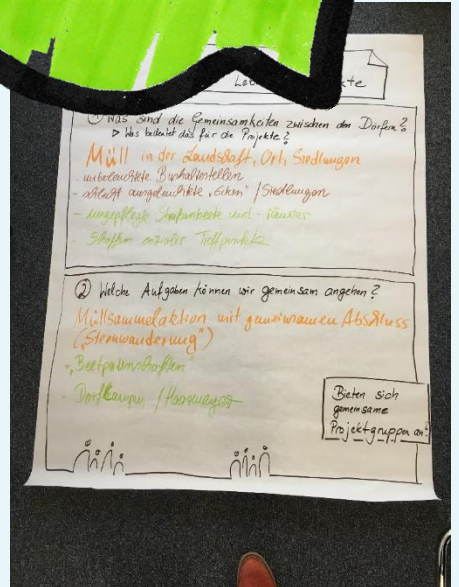 Le
kte
① Was sind die Gemeinsamkeiten zwischen den Dörfern?
▷ Was bedeutet das für die Projekte?
Müll in der Landschaft, Ort, Siedlungen
- unbeleuchtete Bushaltestellen
- schlecht ausgeleuchtete „Ecken" / Siedlungen
- ungepflegte und -
- Schaffen sozialer Treffpunkte
② Welche Aufgaben können wir gemeinsam angehen?
Müllsammelaktion mit gemeinsamen Abschluss
(Sternwanderung")
- „Beetpatenschaften"
- Dorf
Bieten sich
gemeinsame
Projektgruppen an?